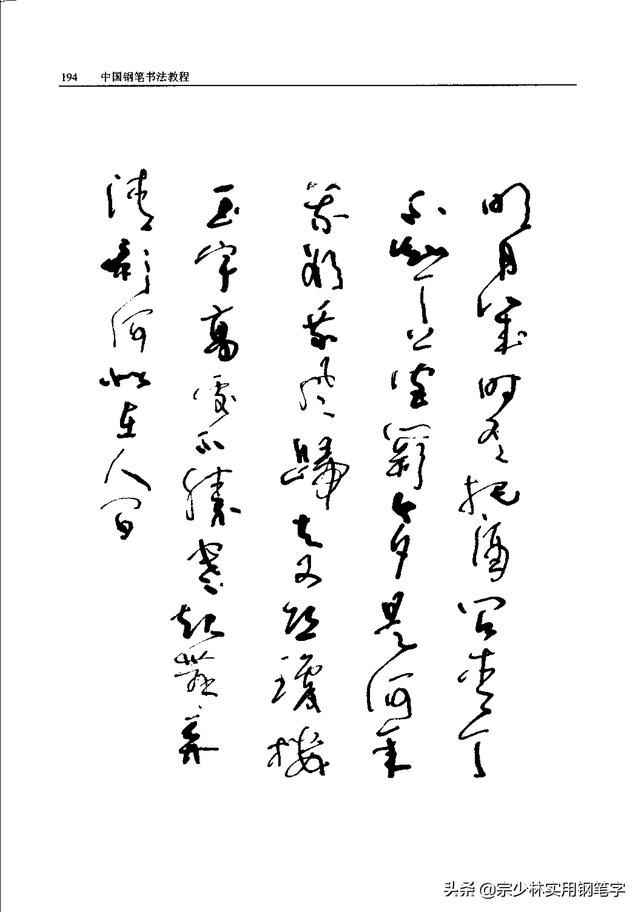 194 中国钢笔书法教程
明月幾时有把酒问青天
不知天上宫闕今夕是何年
我欲乘风歸去又恐瓊樓
玉宇高處不勝寒起舞弄
清影何似在人间
头条 @宗少林实用钢笔字